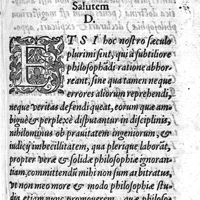 Salutem
D.
ETSI hoc nostro sæculo
plurimi sint, qui à subtiliore
philosophãdi ratione abhor-
reant, sine qua tamen neque
errores aliorum reprehendi,
neque veritas defendi queat, eorum quæ am-
biguè & perplexè disputantur in disciplinis,
nihilominus ob prauitatem ingeniorum, &
iudicij imbecillitatem, qua plerique laborãt,
propter veræ & solidæ philosophiæ ignoran-
tiam, committendũ mihi non sum arbitratus,
vt non meo more & modo philosophiæ stu-
dia etiam mox promouerem, quæ philosoph